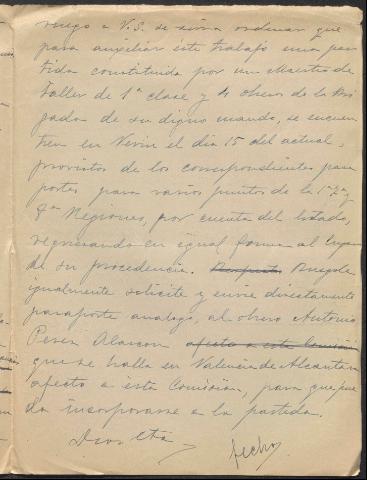 ruego a V.S. se sirva ordenar que
para auxiliar este trabajo una par
tida constituida por un Maestro de
Taller de 1ª clase y 4 obreros de la Bri
gada de su digno mando, se encuen
tren en el dia 15 del actual,
provistos de los correspondientes pasa
portes para varios puntos de la 1ª 2ª y
8ª Regiones, por cuenta del Estado,
regresando en igual forma al lugar
de su procedencia. Ruegole
igualmente solicite y envie directamente
pasaporte analogo, al obrero Antonio
Perez Alarcon afecto a esta Comisión
que se halla en Valencia de Alcantara
afecto a esta Comisión, para que pue
da incorporarse a la partida.
Dios etª
fecha